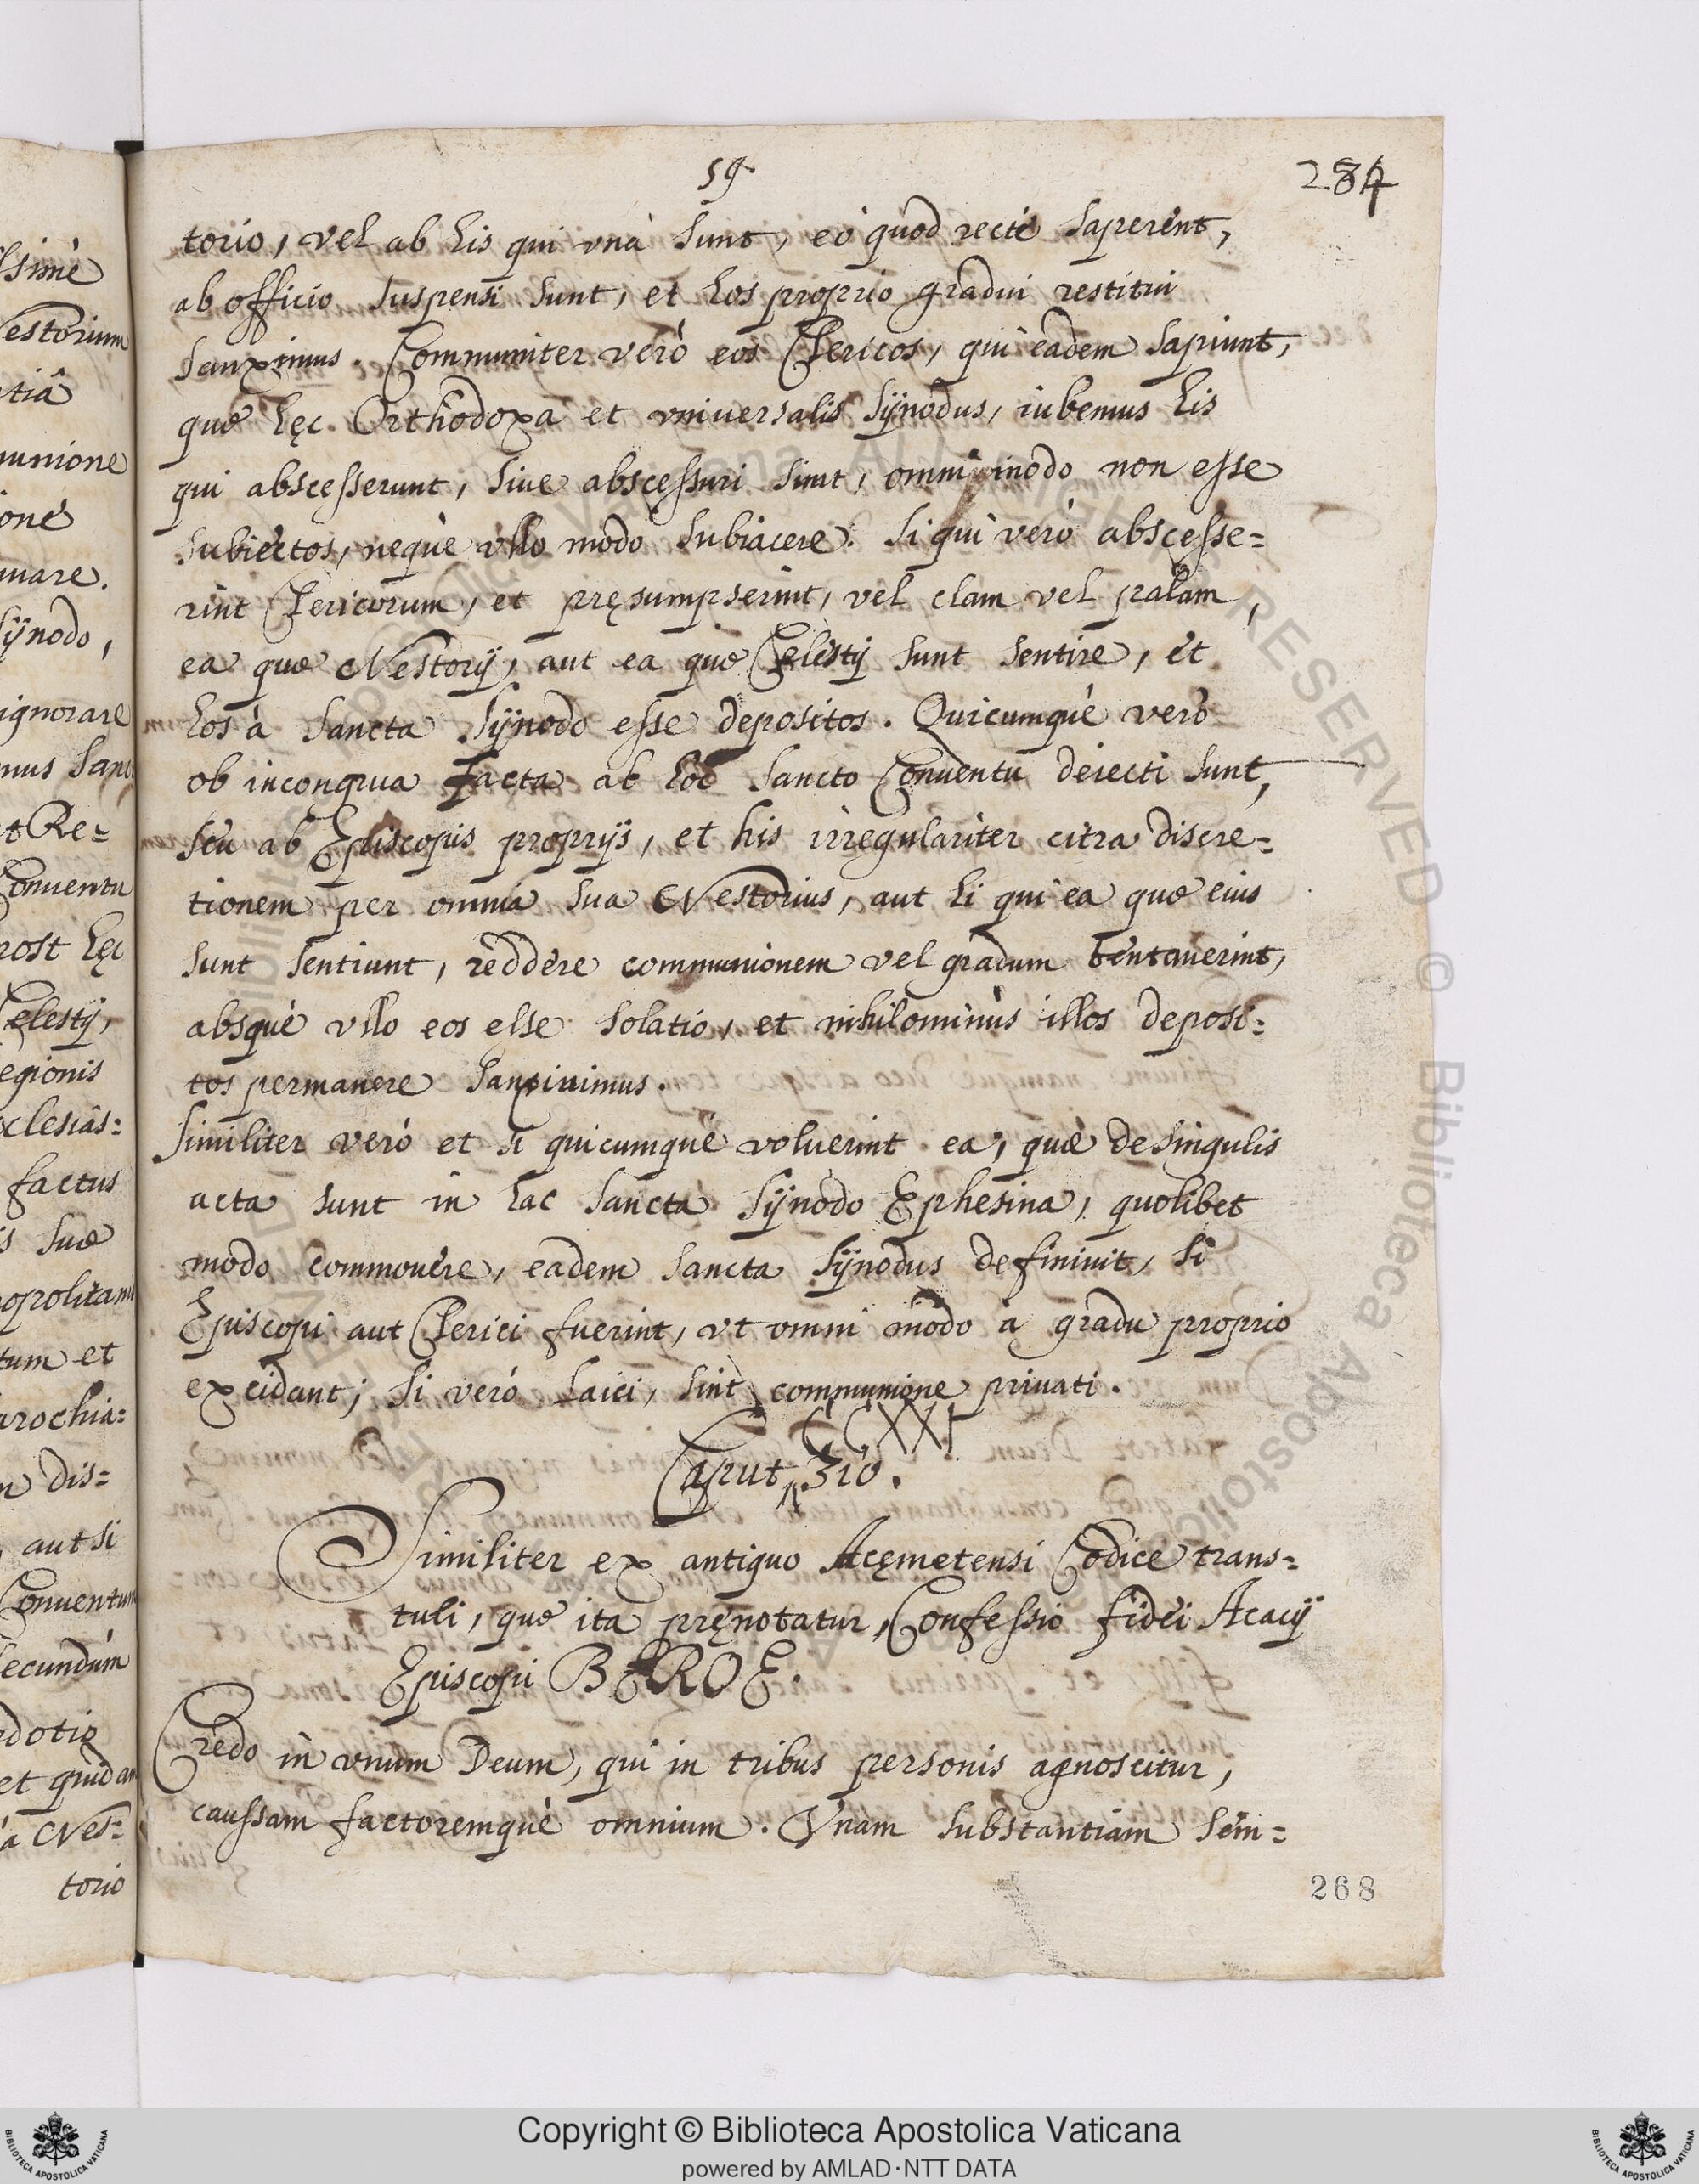 59.
284
torio, vel ab his qui vnà sunt, eò quod rectè saperent,
ab officio suspensi sunt, et hos proprio gradui restitui
sanximus. Communiter verò eos Clericos, qui eadem sapiunt,
quæ hęc Orthodoxa et vniuersalis Sÿnodus, iubemus his
qui abscesserunt, siue abscessuri sunt, omni modo non esse
subiectos, neque vllo modo subiacere. Si qui verò abscesse=
rint Clericorum, et pręsumpserint, vel clam vel palam,
ea quæ Nestorij, aut ea quæ Celestij sunt sentire, et
hos à sancta Sÿnodo esse depositos. Quicumque verò
ob incongrua facta ab hoc sancto Conuentu deiecti sunt,
seu ab Episcopis proprijs, et his irregulariter citra discre=
tionem per omnia sua Nestorius, aut hi qui ea quæ eius
sunt sentiunt, reddere communionem vel gradum tentauerint,
absque vllo eos esse solatio, et nihilominus illos deposi=
tos permanere sanciuimus.
Similiter verò et si quicumque voluerint ea, quæ de singulis
acta sunt in hac sancta Sÿnodo Ephesina, quolibet
modo commouere, eadem sancta Sÿnodus definiuit, si
Episcopi aut Clerici fuerint, vt omni modo à gradu proprio
excidant; si verò laici, sint communione priuati.
CCXXI
Caput 310.
Similiter ex antiquo Acęmetensi Codice trans=
tuli, quæ ita pręnotatur, Confessio fidei Acacij
Episcopi BEROE.
Credo in vnum Deum, qui in tribus personis agnoscitur,
caussam factoremque omnium. Vnam substantiam sem=
268
ssimè
Nestorium
ntiâ
munione
ione
mare.
Sÿnodo,
ignorare
et Re=
Conuentu
post hęc
Celestij,
regionis
cclesias=
factus
s suæ
opolitanu
tum et
arochia=
n dis=
, aut si
Conuentum
secundùm
et quidam
à Nes=
torio
Copyright © Biblioteca Apostolica Vaticana
powered by AMLAD·NTT DATA